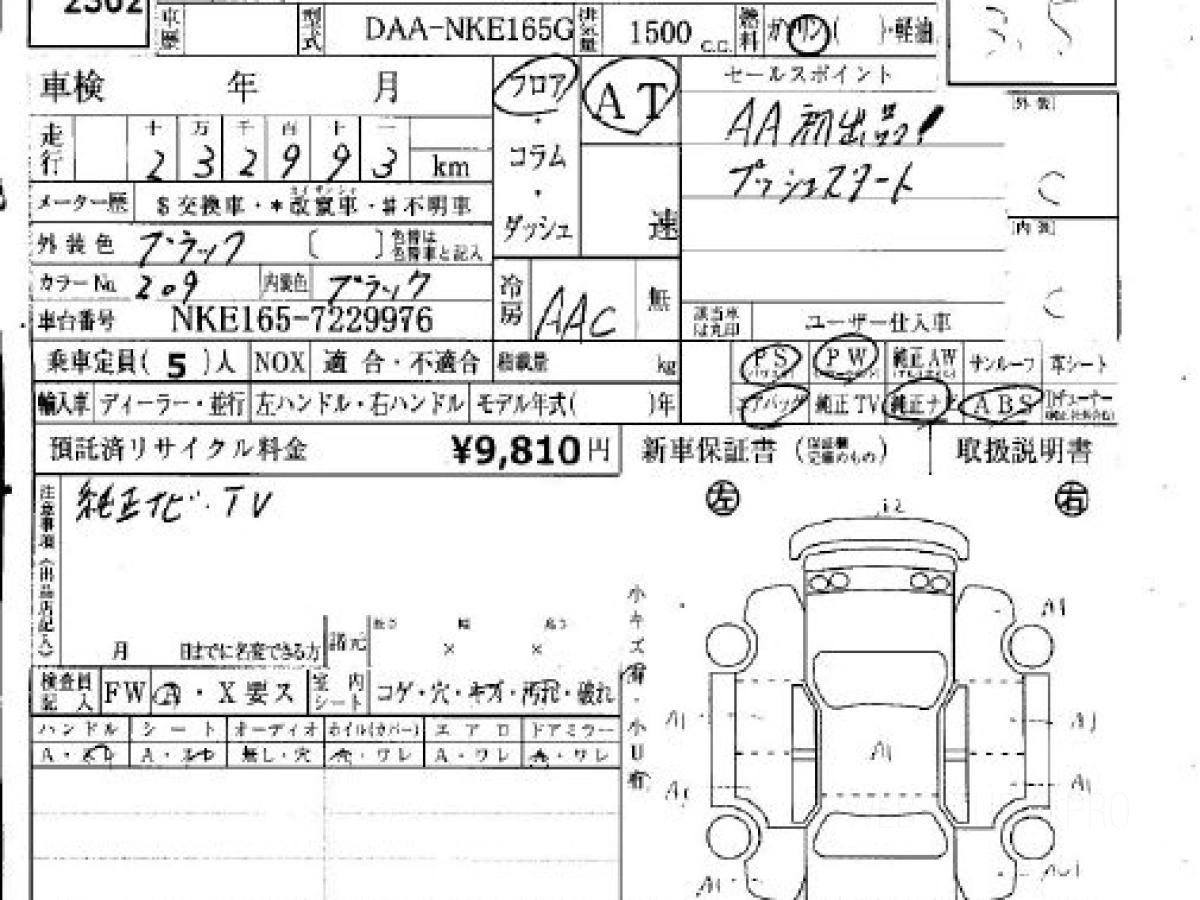 2302
車歴 型式 DAA-NKE165G 排気量 1500 C.C. 燃料 ガソリン( )・軽油 3.5
車検 年 月 フロア AT セールスポイント
十 万 千 百 十 一
走行 2 3 2 9 9 3 km
AA初出品!
プッシュスタート
外装 C
コラム
ダッシュ 速
メーター歴 $交換車・*改竄車・#不明車
内装 C
外装色 ブラック 〔 〕色替は色替車と記入
カラーNo. 209 内装色 ブラック
冷房 AAC 無
車台番号 NKE165-7229976
該当車は丸印 ユーザー仕入車
乗車定員( 5 )人 NOX 適合・不適合 積載量 kg PS PW 純正AW サンルーフ 革シート
輸入車 ディーラー・並行 左ハンドル・右ハンドル モデル年式( )年 エアバック 純正TV 純正ナビ ABS
預託済リサイクル料金 ¥9,810円 新車保証書 取扱説明書
注意事項(出品店記入) 純正ナビ・TV
左 右
月 日までに名変できる方 諸元 長さ × 幅 × 高さ
検査員記入 FW A・X要ス 室内シート コゲ・穴・キズ・汚れ・破れ
ハンドル シート オーディオ ホイル(カバー) エアロ ドアミラー
無し・穴 ワレ A・ワレ ワレ
小キズ有・小U有
A1 A1
A1
A1 A1
A1